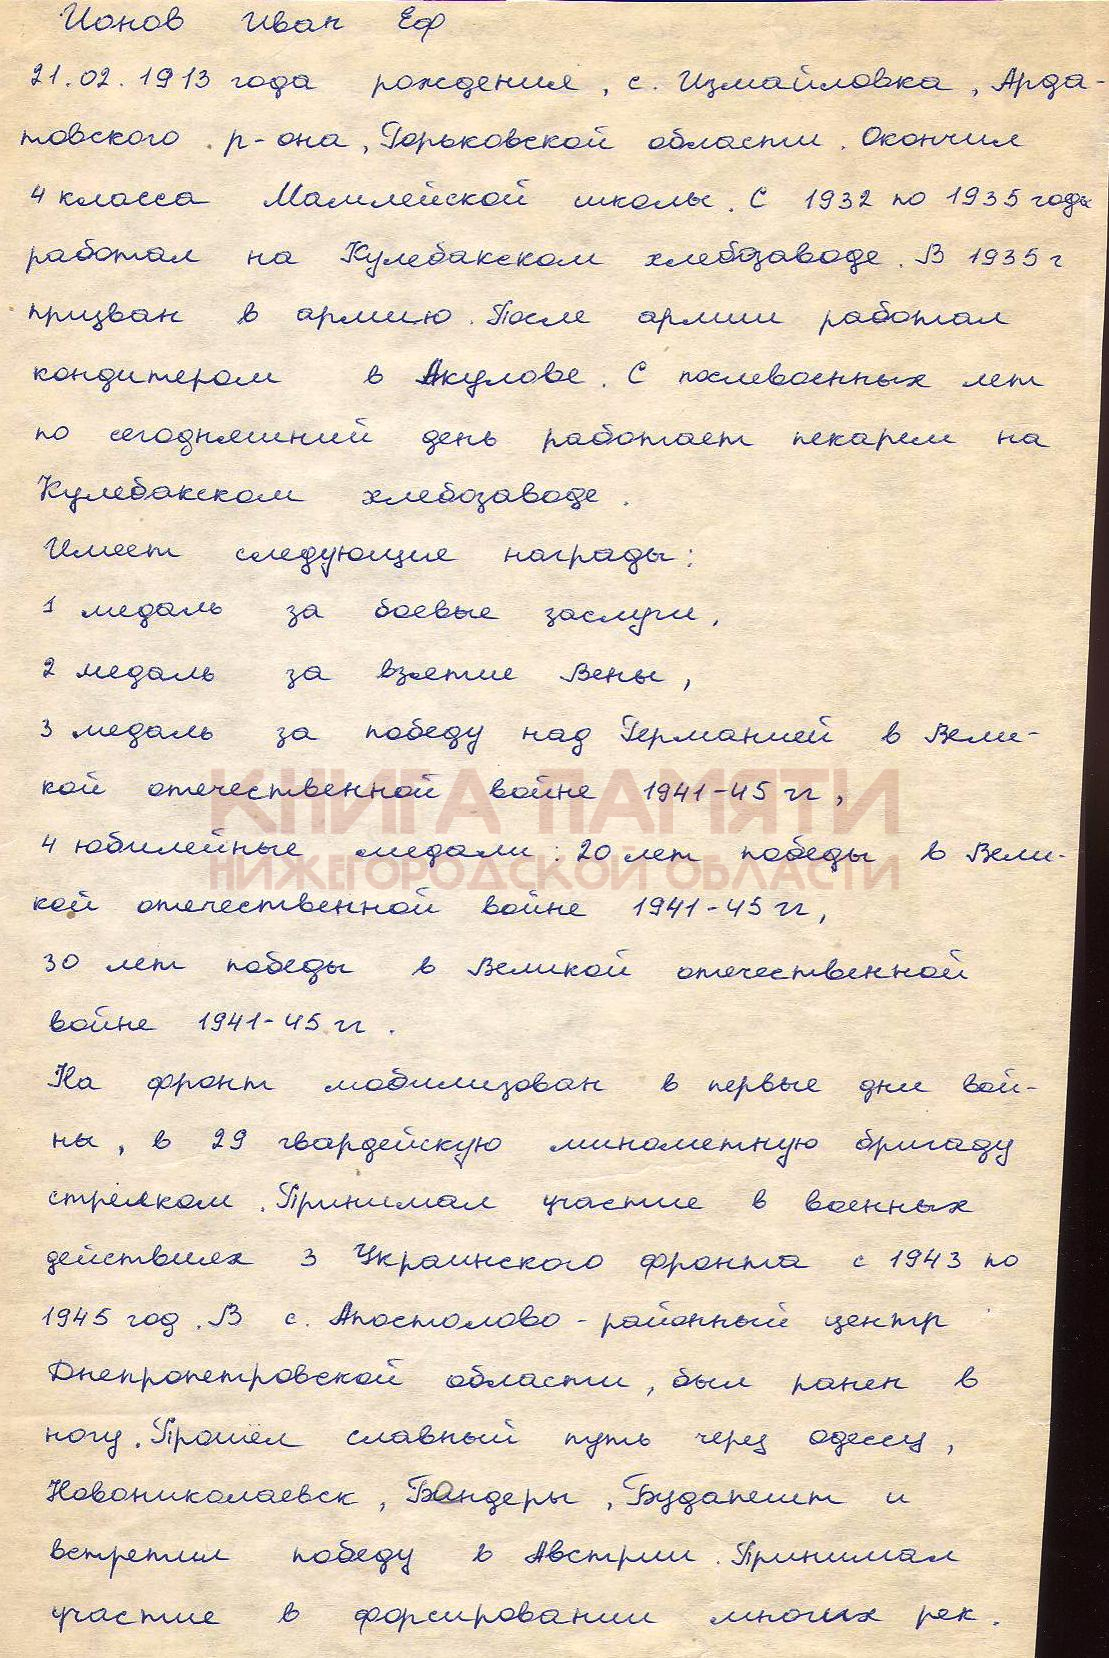 Ионов Иван Еф
21.02.1913 года рождения, с. Измайловка, Арда-
товского р-она, Горьковской области. Окончил
4 класса Мамлейской школы. С 1932 по 1935 годы
работал на Кулебакском хлебозаводе. В 1935 г
призван в армию. После армии работал
кондитером в Акулове. С послевоенных лет
по сегодняшний день работает пекарем на
Кулебакском хлебозаводе.
Имеет следующие награды:
1 медаль за боевые заслуги,
2 медаль за взятие Вены,
3 медаль за победу над Германией в Вели-
кой отечественной войне 1941-45 гг,
КНИГА ПАМЯТИ
4 юбилейные медали: 20 лет победы в Вели-
НИЖЕГОРОДСКОЙ ОБЛАСТИ
кой отечественной войне 1941-45 гг,
30 лет победы в Великой отечественной
войне 1941-45 гг.
На фронт мобилизован в первые дни вой-
ны, в 29 гвардейскую минометную бригаду
стрелком. Принимал участие в военных
действиях 3 Украинского фронта с 1943 по
1945 год. В с. Апостолово - районный центр
Днепропетровской области, был ранен в
ногу. Прошёл славный путь через одессу,
Новониколаевск, Бандеры, Будапешт и
встретил победу в Австрии. Принимал
участие в форсировании многих рек.